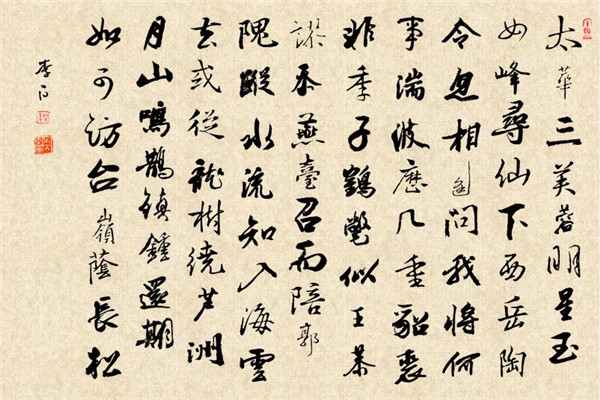 太華三芙蓉明星玉
女峰尋仙下西岳陶
令忽相逢問我將何
事湍波歷几重貂裘
非季子鶴氅似王恭
謬忝燕臺召而陪郭
隗蹤水流知入海雲
去或從龍樹繞芦洲
月山鳴鵲鎮鍾還期
如可訪台嶺蔭長松
李白